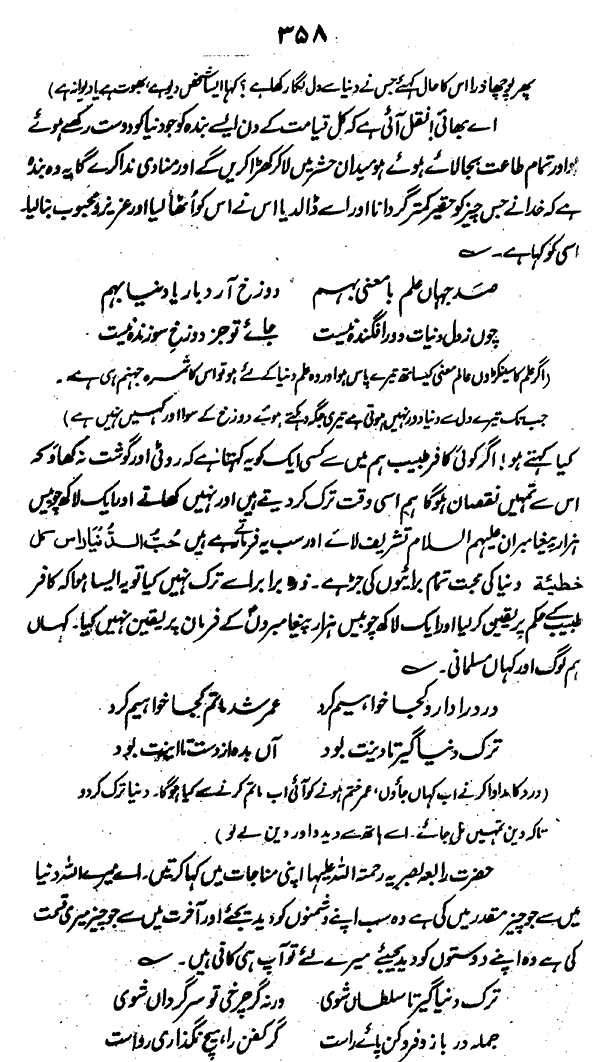 ۳۵۸
پھر پوچھا ذرا اس کا حال کہئے جس نے دنیا سے دل لگا رکھا ہے؟ کہا ایسا شخص دیو ہے، بھوت ہے یا دیوانہ ہے)
اے بھائی! نقل آئی ہے کہ کل قیامت کے دن ایسے بندہ کو جو دنیا کو دوست رکھے ہوئے
ہو اور تمام طاعت بجا لائے ہوئے ہو میدان حشر میں لا کر کھڑا کریں گے اور منادی ندا کرے گا یہ وہ بندہ
ہے کہ خدا نے جس چیز کو حقیر کمتر گردانا اور اسے ڈال دیا اس نے اس کو اُٹھا لیا اور عزیز و محبوب بنا لیا۔
اسی کو کہا ہے۔ ؎
صد جہاں علم با معنی بہم دوزخ آرد بار یا دنیا بہم
چوں ز دل دنیات دور افگندہ نیست جائے تو جز دوزخِ سوزندہ نیست
(اگر علم کا سینکڑوں عالم معنی کیساتھ تیرے پاس ہو اور وہ علم دنیا کے لئے ہو تو اس کا ثمرہ جہنم ہی ہے۔
جب تک تیرے دل سے دنیا دور نہیں ہوتی ہے تیری جگہ دہکتے ہوئے دوزخ کے سوا اور کہیں نہیں ہے)
کیا کہتے ہو! اگر کوئی کافر طبیب ہم میں سے کسی ایک کو یہ کہتا ہے کہ روٹی اور گوشت نہ کھاؤ کہ
اس سے تمہیں نقصان ہوگا ہم اسی وقت ترک کر دیتے ہیں اور نہیں کھاتے اور ایک لاکھ چوبیس
ہزار پیغامبران علیہم السلام تشریف لائے اور سب یہ فرماتے ہیں حُبُّ الدُّنْیَا راس کل
خطیئة دنیا کی محبت تمام برائیوں کی جڑ ہے۔ برابر اسے ترک نہیں کیا تو یہ ایسا ہوا کہ کافر
طبیب کے حکم پر یقین کر لیا اور ایک لاکھ چوبیس ہزار پیغامبروںؑ کے فرمان پر یقین نہیں کیا۔ کہاں
ہم لوگ اور کہاں مسلمانی۔ ؎
درد را دارو کجا خواہیم کرد عمر شد ماتم کجا خواہیم کرد
ترک دنیا گیر تا دینت بود آں بدہ از دست تا اینت بود
(درد کا مداوا کرنے اب کہاں جاؤں، عمر ختم ہونے کو آئی اب ماتم کرنے سے کیا ہوگا۔ دنیا ترک کر دو
تاکہ دین تمہیں مل جائے۔ اسے ہاتھ سے دیدو اور دین لے لو)
حضرت رابعہ بصریہ رحمۃ اللہ علیہا اپنی مناجات میں کہا کرتیں۔ اے میرے اللہ دنیا
میں سے جو چیز مقدر میں کی ہے وہ سب اپنے دشمنوں کو دیدیجئے اور آخرت میں سے جو چیز میری قسمت
کی ہے وہ اپنے دوستوں کو دیدیجیئے میرے لئے تو آپ ہی کافی ہیں۔ ؎
ترک دنیا گیر تا سلطاں شوی ورنہ گر چرخی تو سرگرداں شوی
جملہ در باز و فرو کن پائے راست گر کفن را ہیچ نگذاری رواست